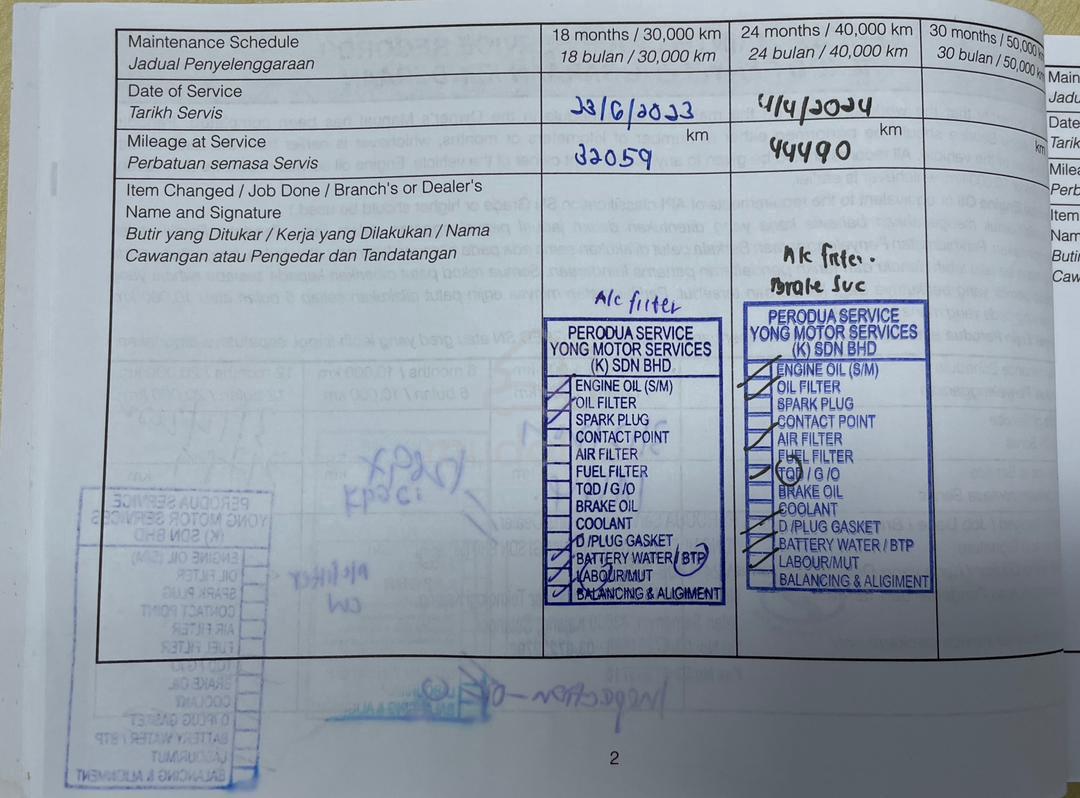 Maintenance Schedule
Jadual Penyelenggaraan
18 months / 30,000 km
18 bulan / 30,000 km
24 months / 40,000 km
24 bulan / 40,000 km
30 months / 50,000 km
30 bulan / 50,000 km
Date of Service
Tarikh Servis
23/6/2023
4/4/2024
Mileage at Service
Perbatuan semasa Servis
32059 km
44490 km
km
Item Changed / Job Done / Branch's or Dealer's
Name and Signature
Butir yang Ditukar / Kerja yang Dilakukan / Nama
Cawangan atau Pengedar dan Tandatangan
A/c filter
PERODUA SERVICE
YONG MOTOR SERVICES
(K) SDN BHD
ENGINE OIL (S/M)
OIL FILTER
SPARK PLUG
CONTACT POINT
AIR FILTER
FUEL FILTER
TQD / G/O
BRAKE OIL
COOLANT
D/PLUG GASKET
BATTERY WATER / BTP
LABOUR/MUT
BALANCING & ALIGIMENT
A/c filter.
Brake Svc
PERODUA SERVICE
YONG MOTOR SERVICES
(K) SDN BHD
ENGINE OIL (S/M)
OIL FILTER
SPARK PLUG
CONTACT POINT
AIR FILTER
FUEL FILTER
TQD / G/O
BRAKE OIL
COOLANT
D/PLUG GASKET
BATTERY WATER / BTP
LABOUR/MUT
BALANCING & ALIGIMENT
2
Main
Jadu
Date
Tarik
Milea
Perb
Item
Nam
Buti
Caw